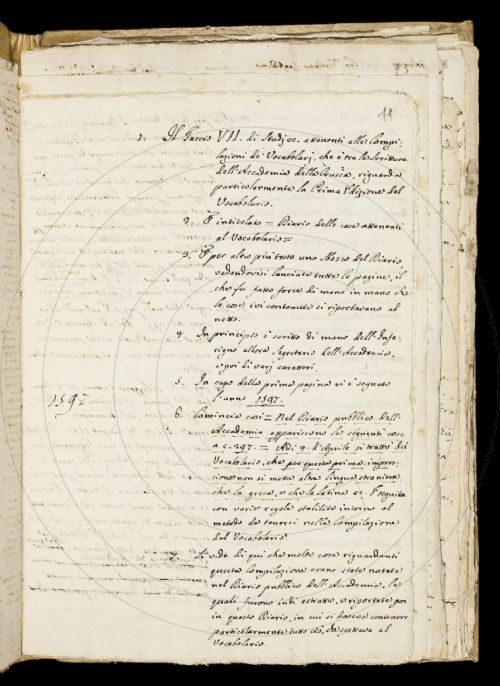 11
1. Il Fascio VII. di Studj ec. attenenti alle Compi-
lazioni de' Vocabolarj, che è tra le Scritture
dell'Accademia della Crusca, riguarda
particolarmente la Prima Edizione del
Vocabolario.
2. È intitolato = Diario delle cose attenenti
al Vocabolario =
3. È per altro più tosto uno Sbozzo del Diario
vedendovisi lanciate tutte le pagine, il
che fu fatto forse di mano in mano che
le cose ivi contenute si riportavano al
netto.
4. In principio è scritto di mano dell'Infe-
rigno allora Segretario dell'Accademia,
e poi di varj caratteri.
5. In capo della prima pagina vi è segnato
1597
l'anno 1597.
6. Comincia così = Nel Diario pubblico dell'
Accademia appariscono le seguenti cose
a c. 297. = Adì 9. d'Aprile si trattò del
Vocabolario, che per questa prima impres-
sione non si metta altra lingua straniera
che la greca, o che la latina ec. E seguita
con varie regole stabilite intorno al
metodo da tenersi nella Compilazione
del Vocabolario.
7. Si vede di qui che molte cose riguardanti
questa Compilazione erano state notate
nel Diario pubblico dell'Accademia, le
quali furono indi estratte, e riportate poi
in questo Diario, in cui si haveva contenere
particolarmente tutto ciò, che spettava al
Vocabolario.